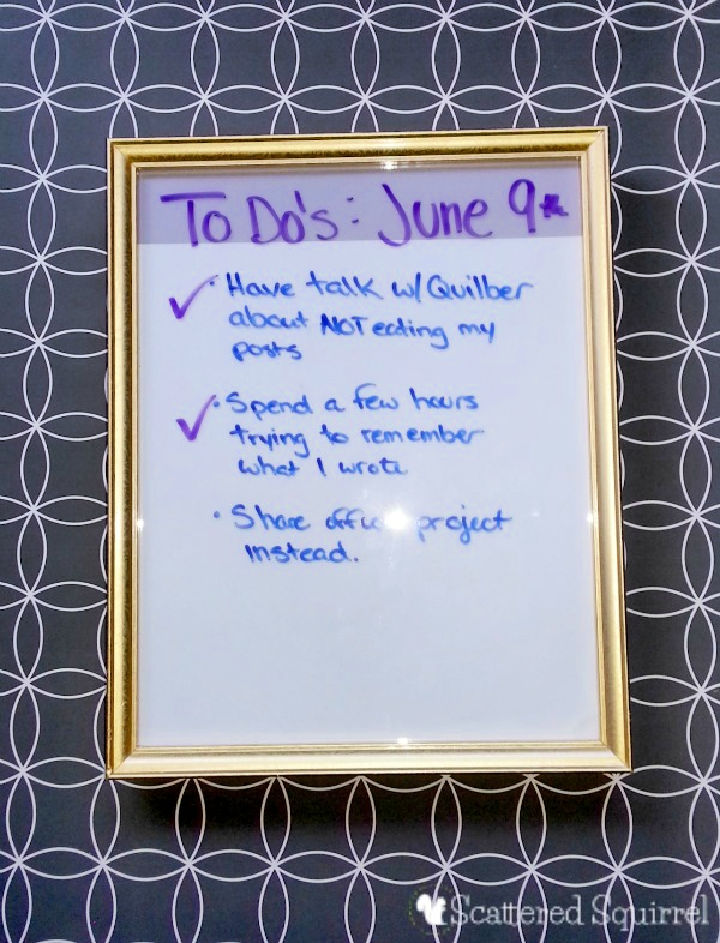 To Do's: June 9th
• Have talk w/ Quilber
about NOT eating my
posts
• Spend a few hours
trying to remember
what I wrote
• Share office project
instead.
Scattered Squirrel